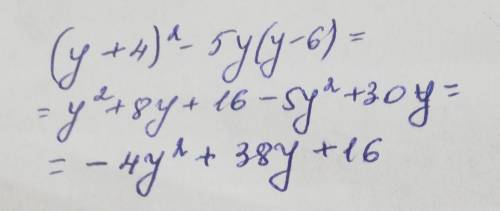 (y + 4)² - 5y(y - 6) =
= y² + 8y + 16 - 5y² + 30y =
= - 4y² + 38y + 16